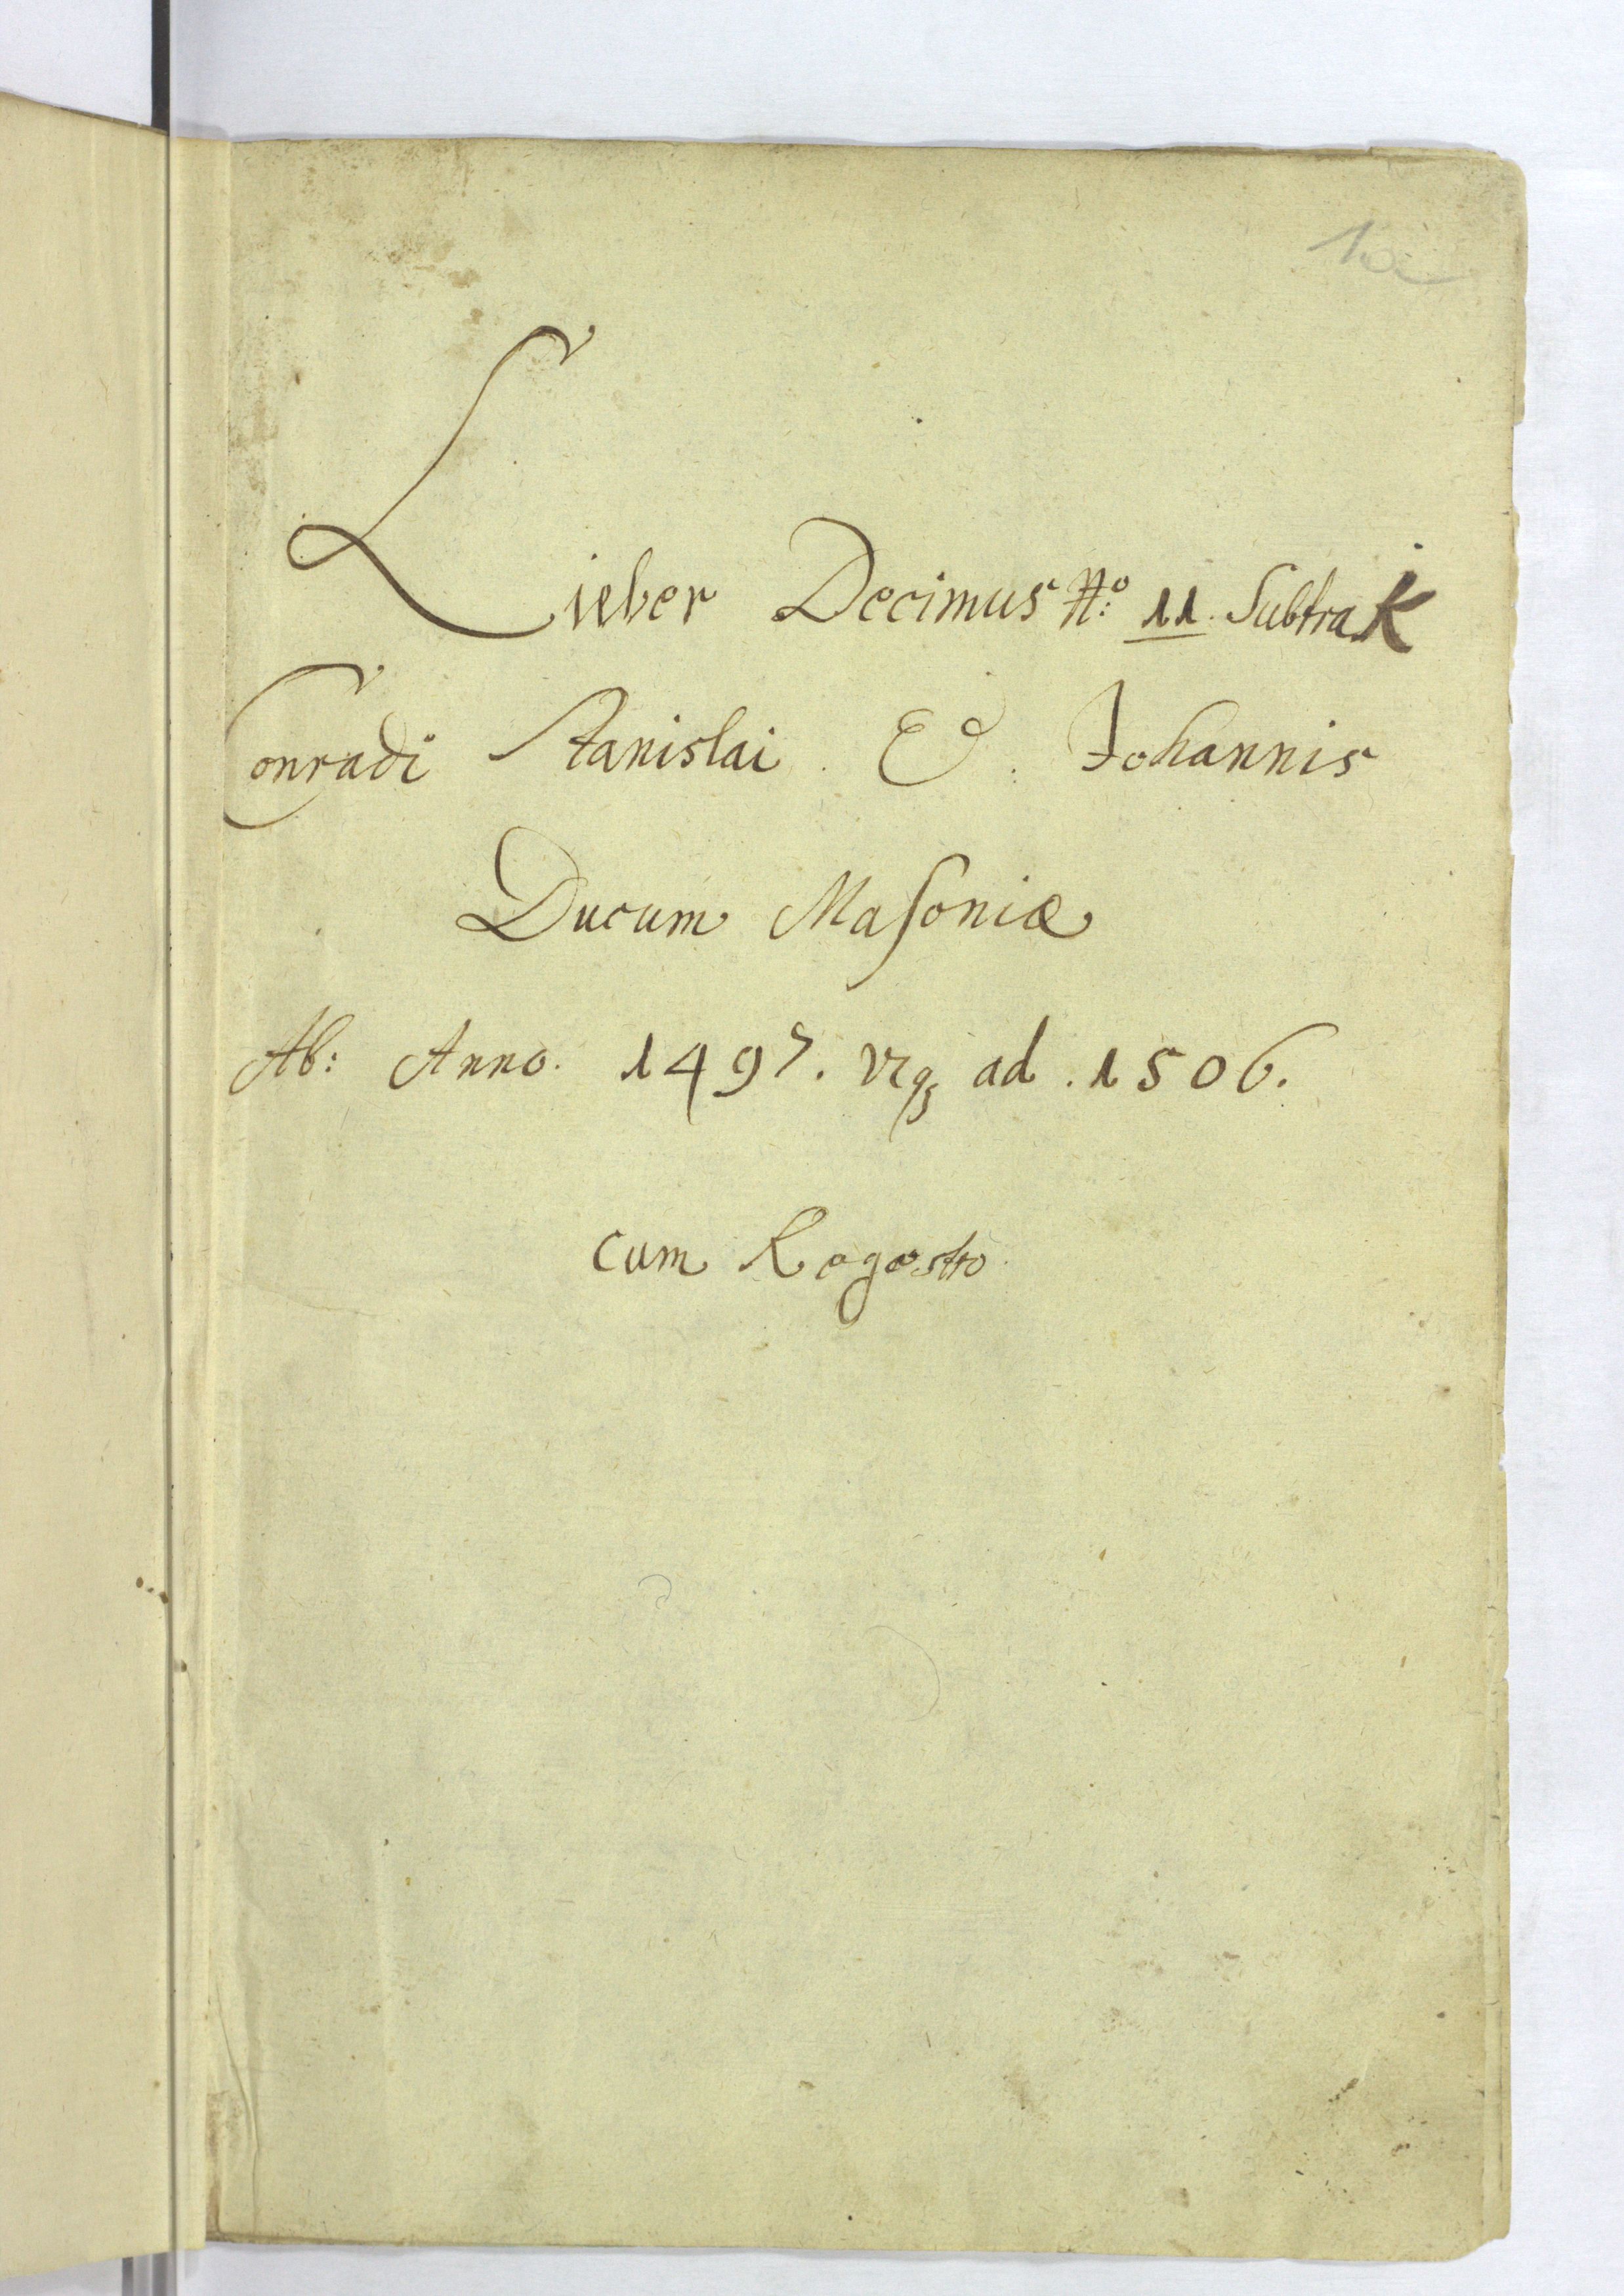 1a
Lieber Decimus No: 11. Subtra K
Conradi Stanislai . Et . Johannis
Ducum Masoniæ
Ab: Anno. 1497. vsq3 ad . 1506.
cum Regestro